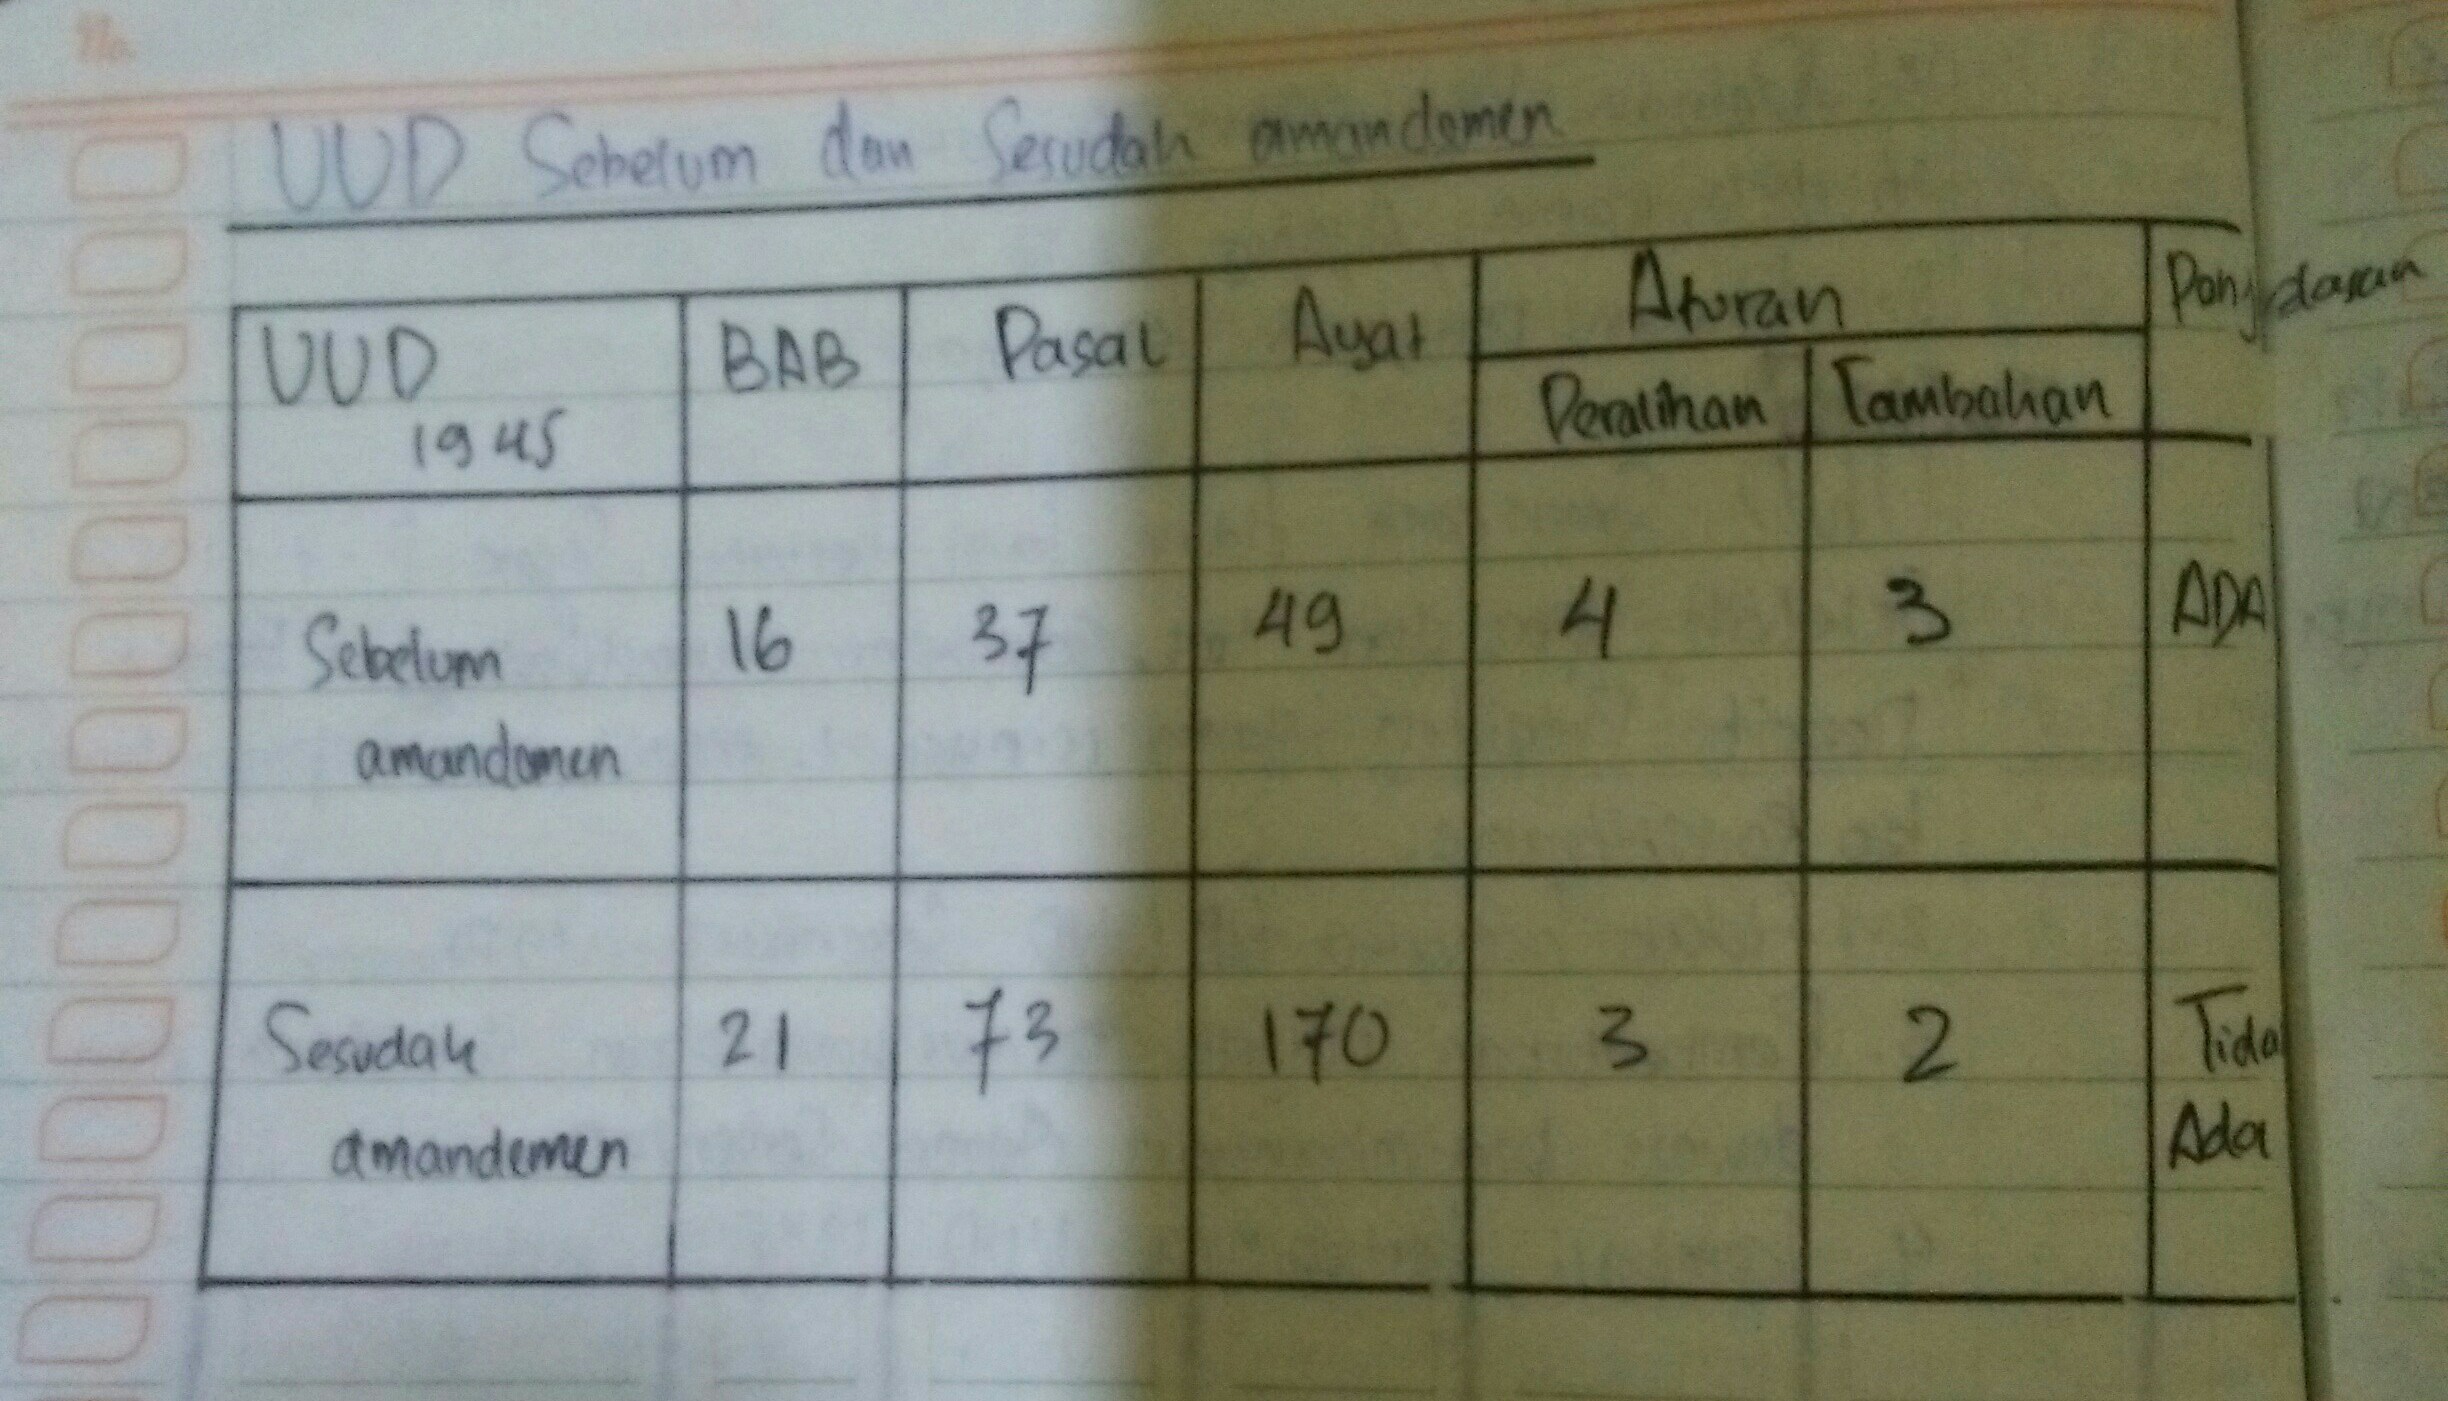 UUD Sebelum dan Sesudah amandemen
UUD 1945 BAB Pasal Ayat Aturan
Peralihan Tambahan
Sebelum amandemen 16 37 49 4 3 ADA
Sesudah amandemen 21 73 170 3 2 Tida Ada